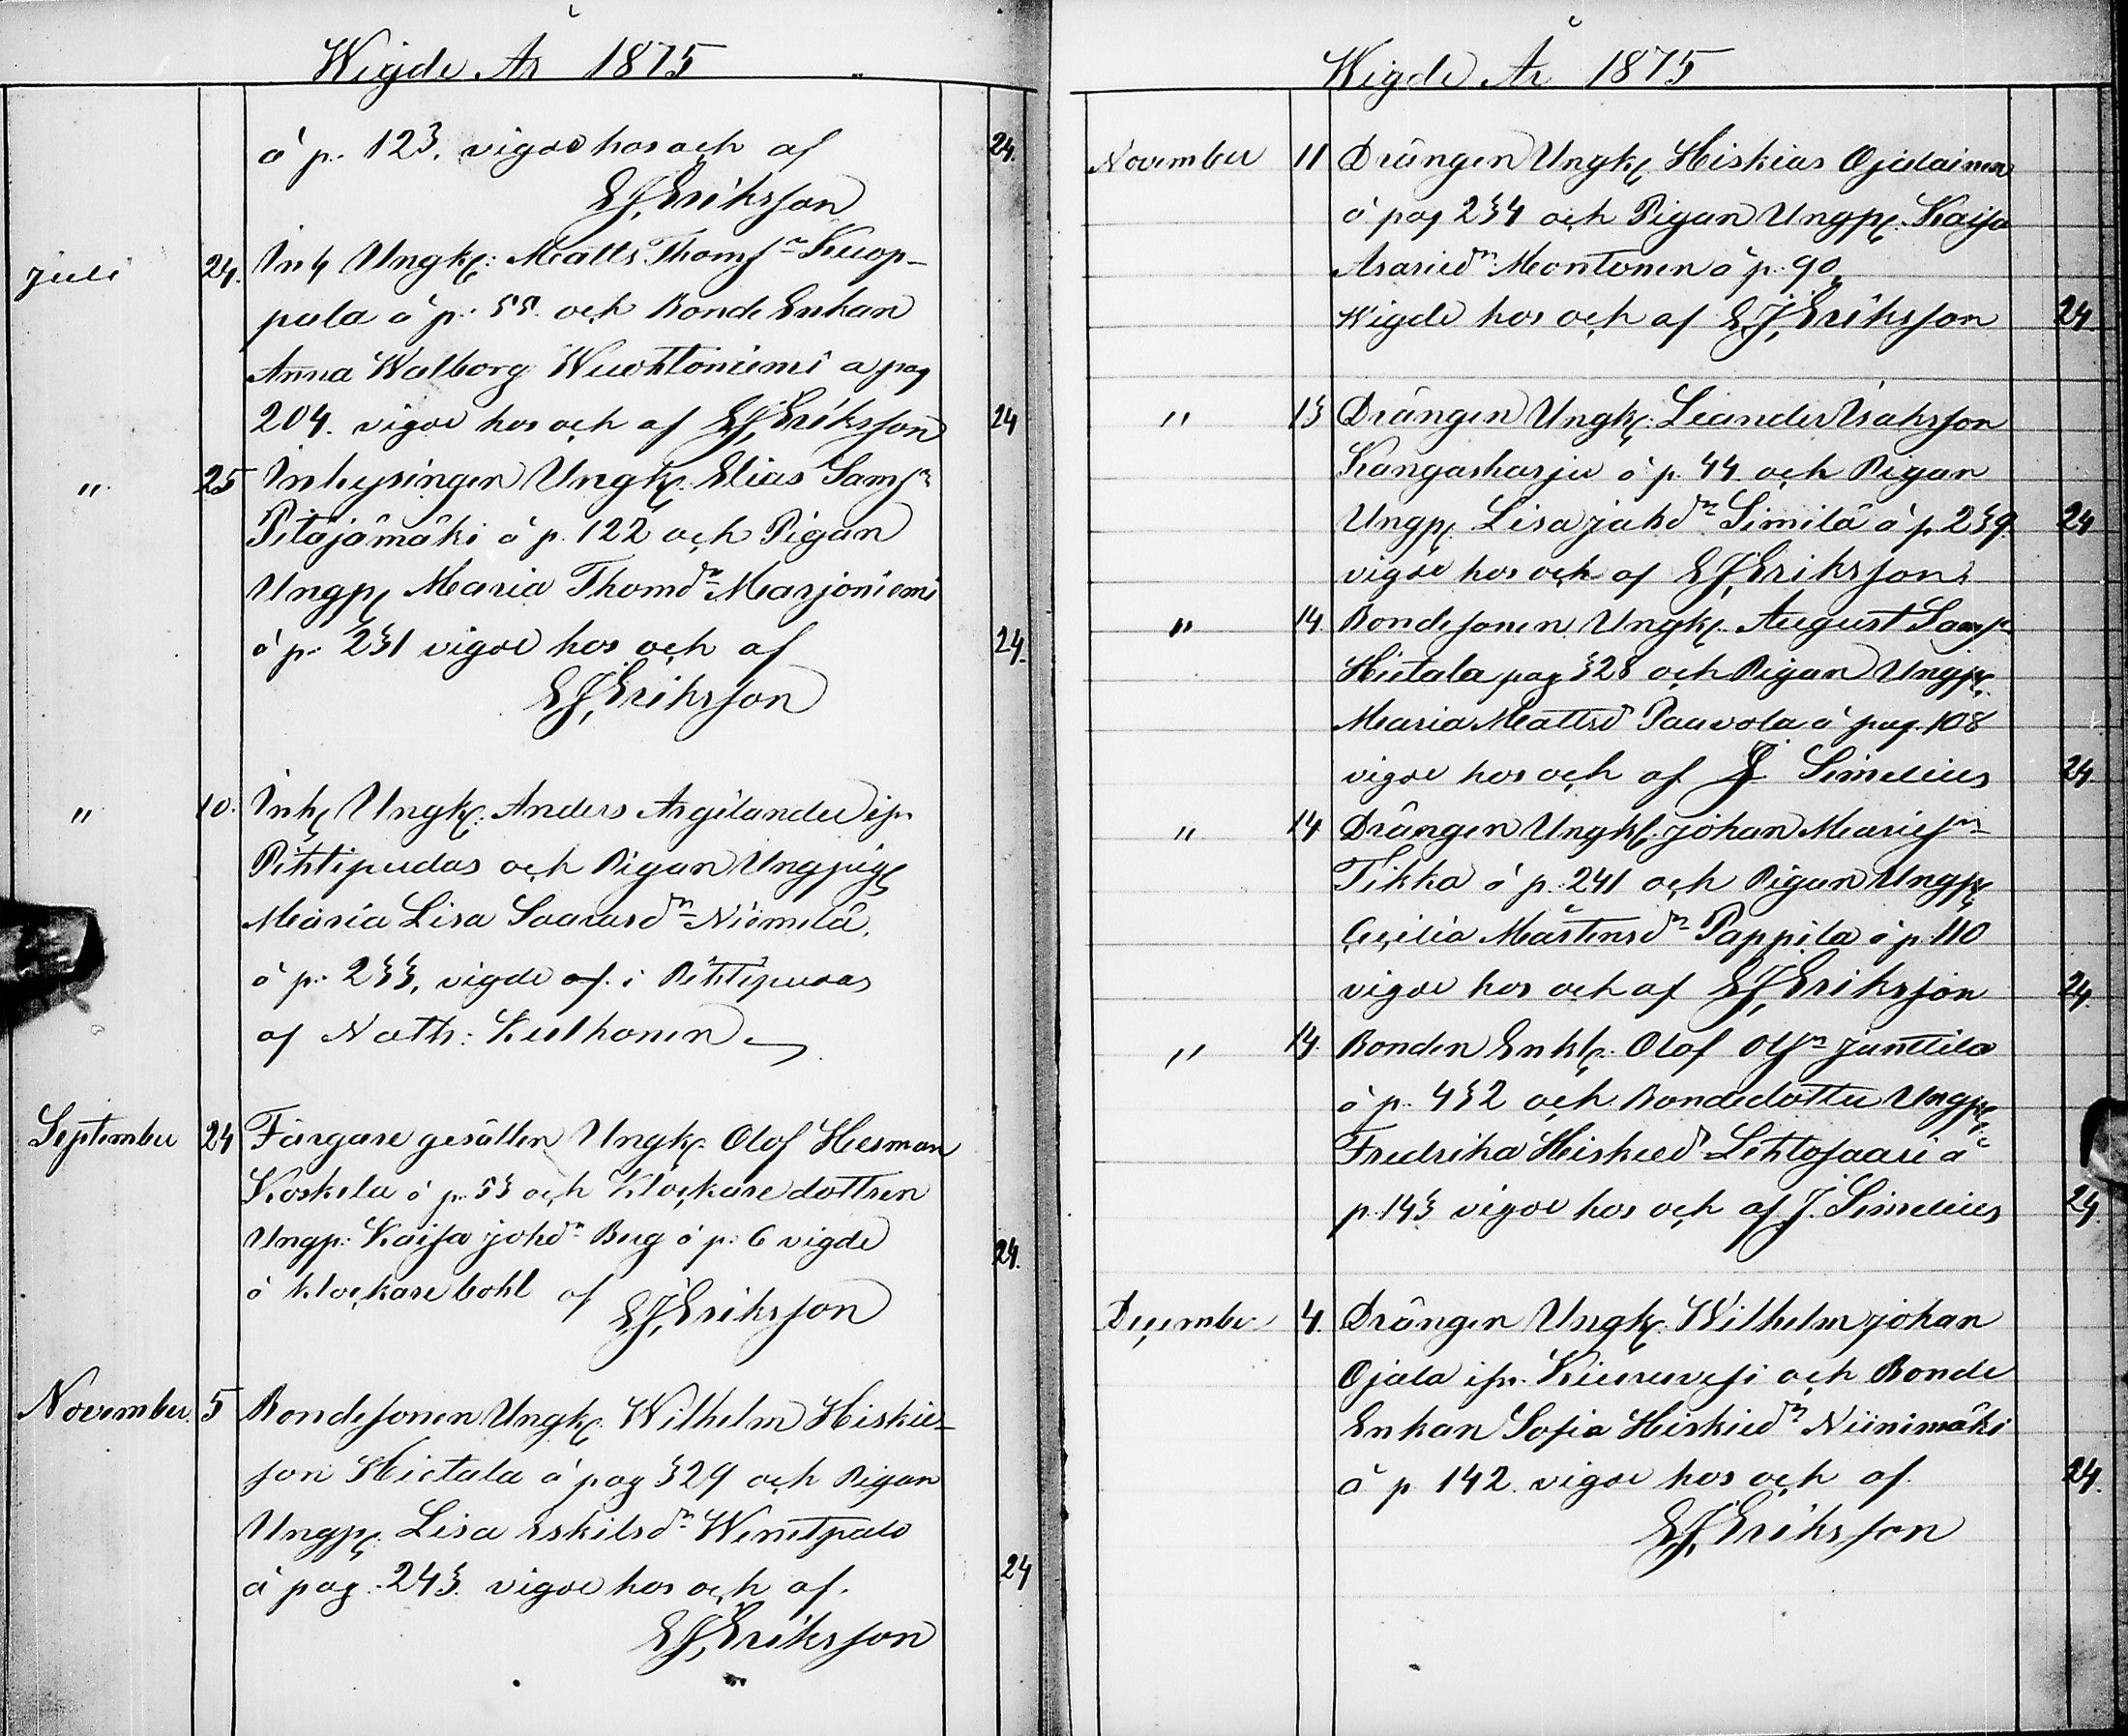 Wigde År 1875
å p. 123. vigde hos och af 24.
E J Eriksson
Juli 24. Inh Ungk: Matts Thomss Kuop-
pala å p. 55. och Bonde Enkan
Anna Walborg Wuohtoniemi a pag
204. vigde hos och af E J Eriksson 24
" 25 Inhysingen Ungk. Elias Samsn
Pitäjämäki å p. 122 och Pigan
Ungp Maria Thomdr Marjoniemi
å p. 231 vigde hos och af 24.
E J Eriksson
" 10. Inh Ungk. Anders Argilander ifr
Pihtipudas och Pigan Ungpig
Maria Lisa Saarasdr Niemilä.
å p. 233, vigde af i Pihtipudas
af Nath: Keihonen
September 24 Färgare gesällen Ungk. Olof Herman
Koskela å p. 53 och Klockare dottren
Ungp: Kaisa Johdr Berg å p: 6 vigde 24.
å Klockare bohl af E J Eriksson
November. 5 Bondesonen Ungk. Wilhelm Hiskie-
son Hietala å pag 329 och Pigan
Ungp. Lisa Eskilsdr Wenetpalo
å pag. 243. vigde hos och af. 24
E J Eriksson
Wigde År 1875
November 11 Drängen Ungk Hiskias Ojalainen
å pag 234 och Pigan Ungp. Kaisa
Asariedr Montonen å p. 90
Wigde hos och af E J Eriksson 24
" 13 Drängen Ungk. Leander Isaksson
Kangasharju å p. 44. och Pigan
Ungp. Lisa Jakdr Similä å p. 239. 24
vigde hos och af E J Eriksson
" 14. Bondesonen Ungk. August Samsn
Hietala pag 328 och Pigan Ungp.
Maria Mattsd Paavola å pag. 108
vigde hos och af J Simelius 24.
" 14 Drängen Ungk. Johan Mariesn
Tikka å p. 241 och Pigan Ungp
Cecilia Mårtensdr Pappila å p. 110
vigde hos och af E J Eriksson 24.
" 14. Bonden Enkl. Olof Olsn Junttila
å p. 432 och Bondedotter Ungp
Fredrika Hiskied Lehtosaari å
p. 143 vigde hos och af J. Simelius 24.
December 4. Drängen Ungk. Wilhelm Johan
Ojala ifr. Kiuruvesi och Bonde
Enkan Sofia Hiskiedr Niinimäki
å p. 142. vigde hos och af. 24.
E J Eriksson